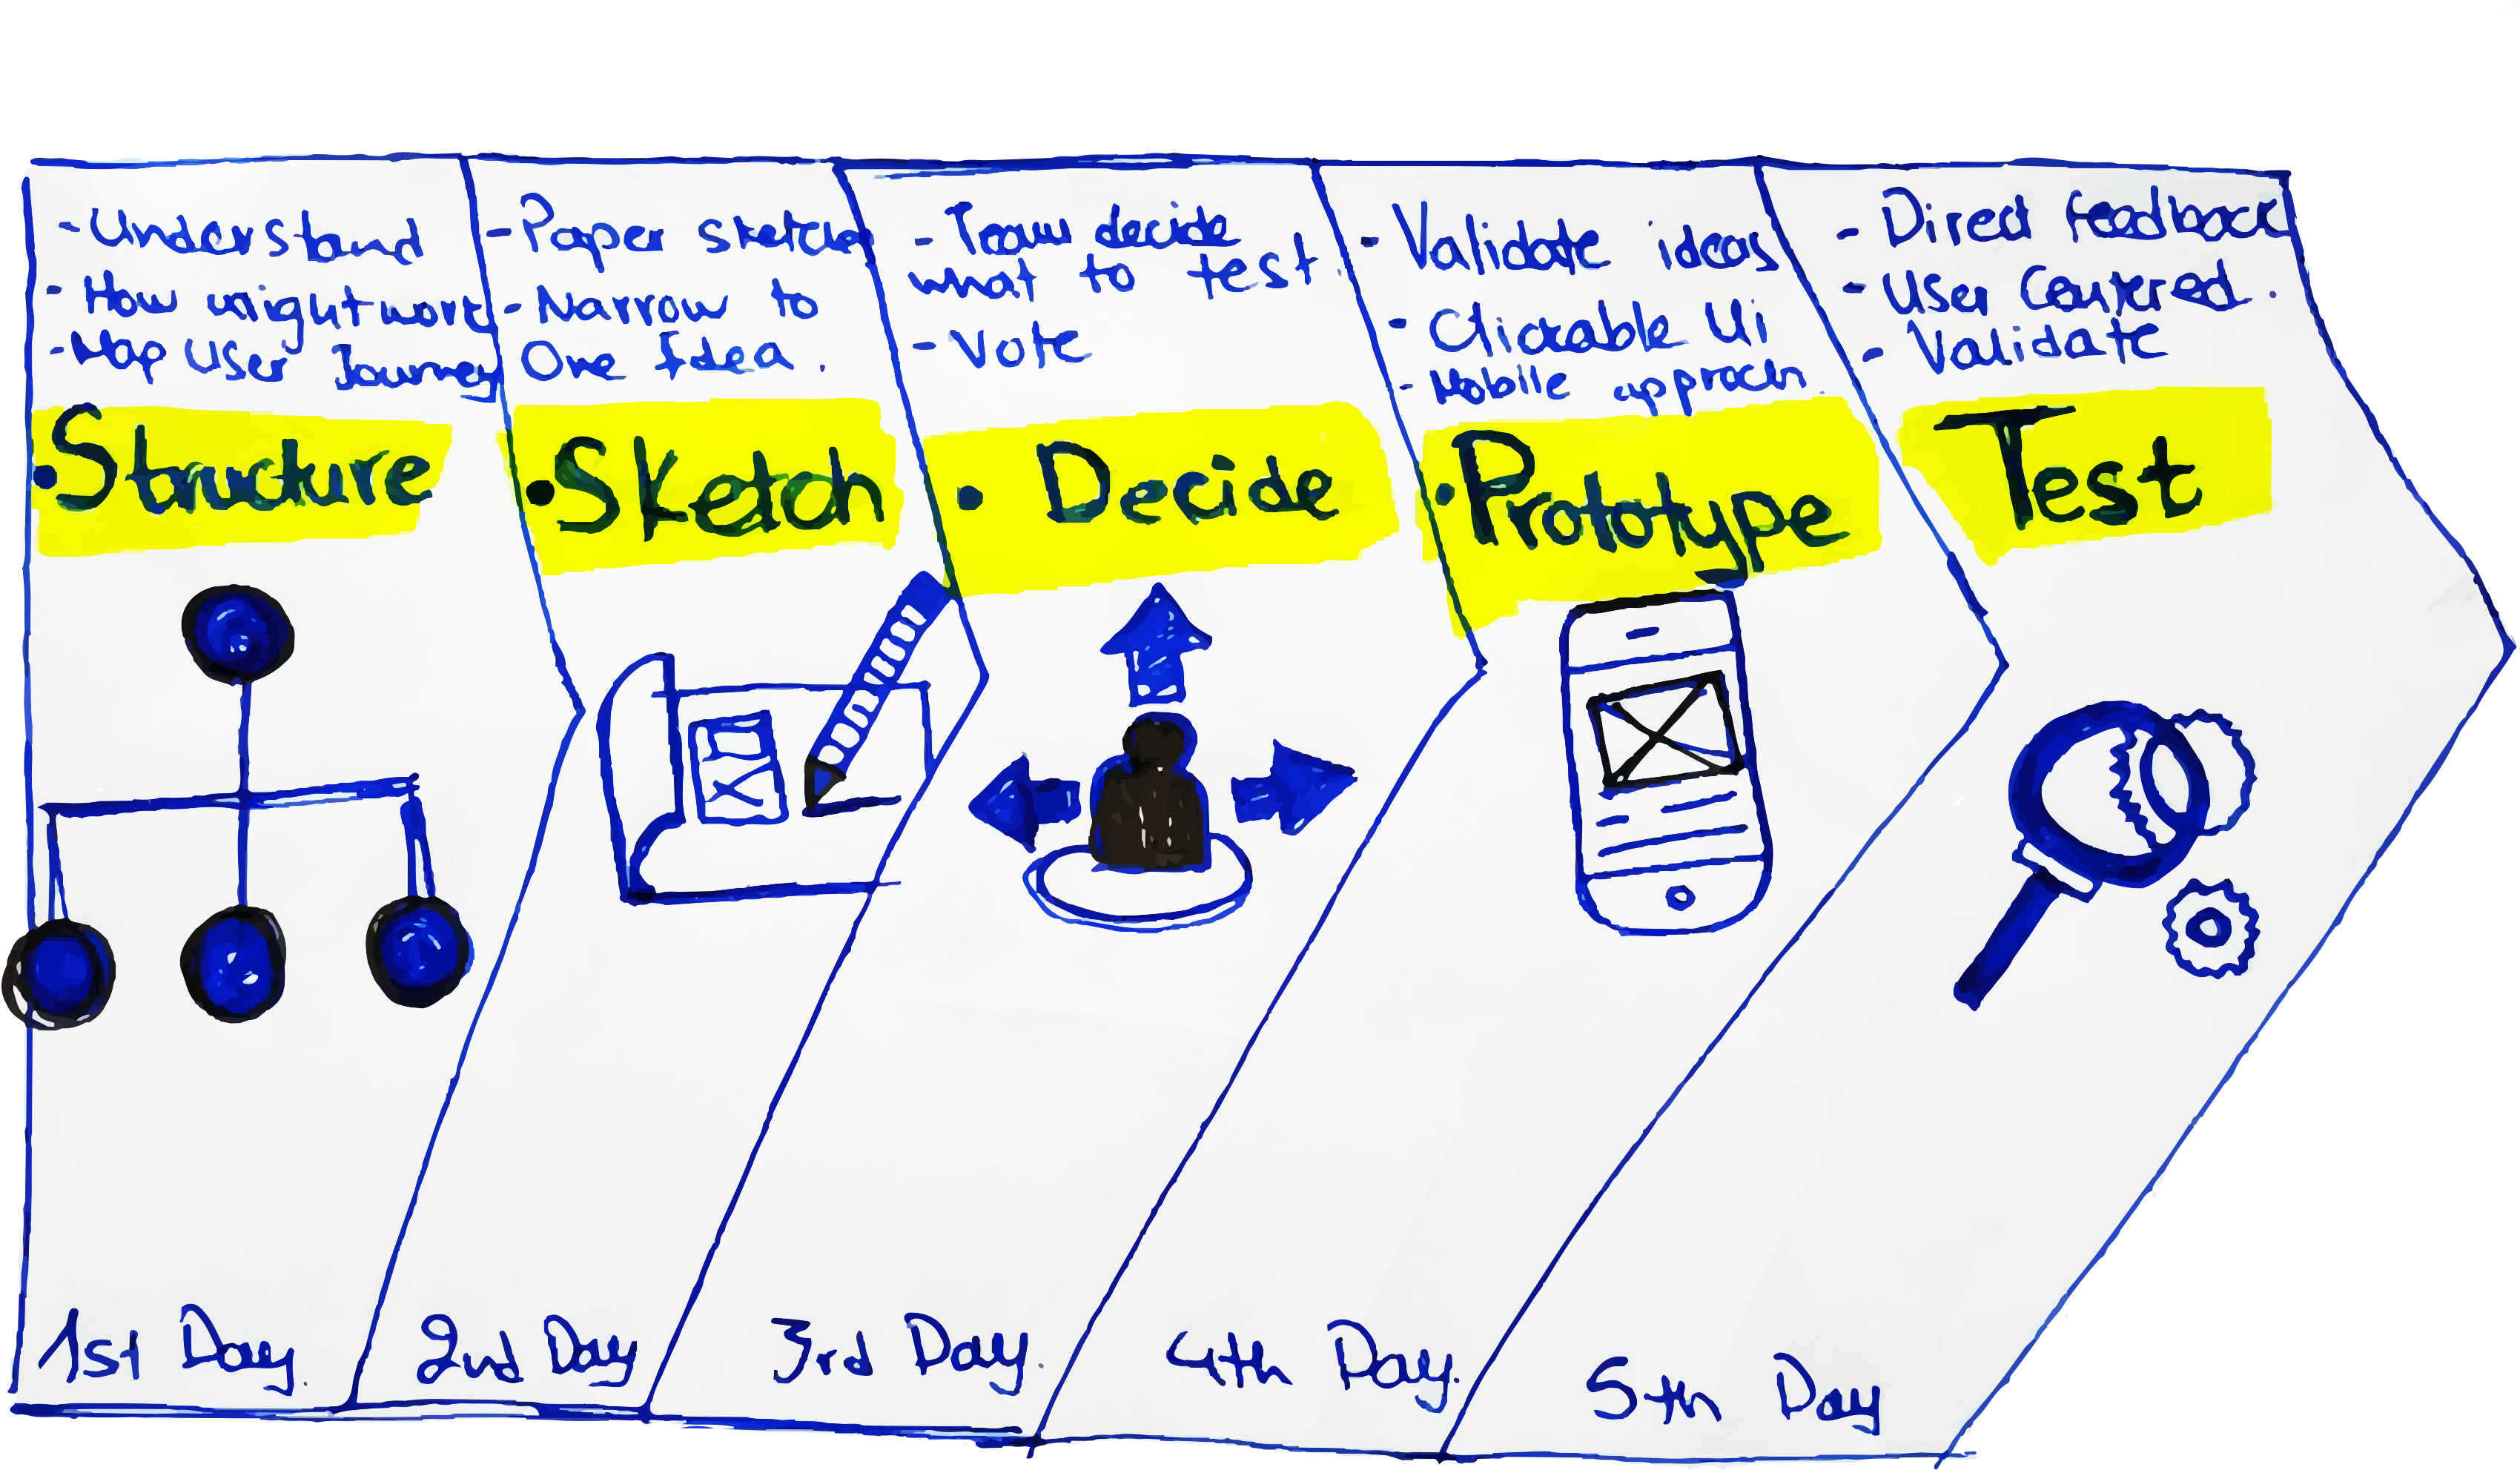 - Understand
- How might work
- Map User Journey
• Structure
1st Day.
- Paper sketch
- Narrow to
One Idea.
• Sketch
2nd Day
- Team decide
what to test
- Vote
• Decide
3rd Day.
- Validate ideas
- Clickable Ui
- Mobile approch
• Prototype
4th Day.
- Direct feedback
- User Centered.
- Validate
Test
5th Day